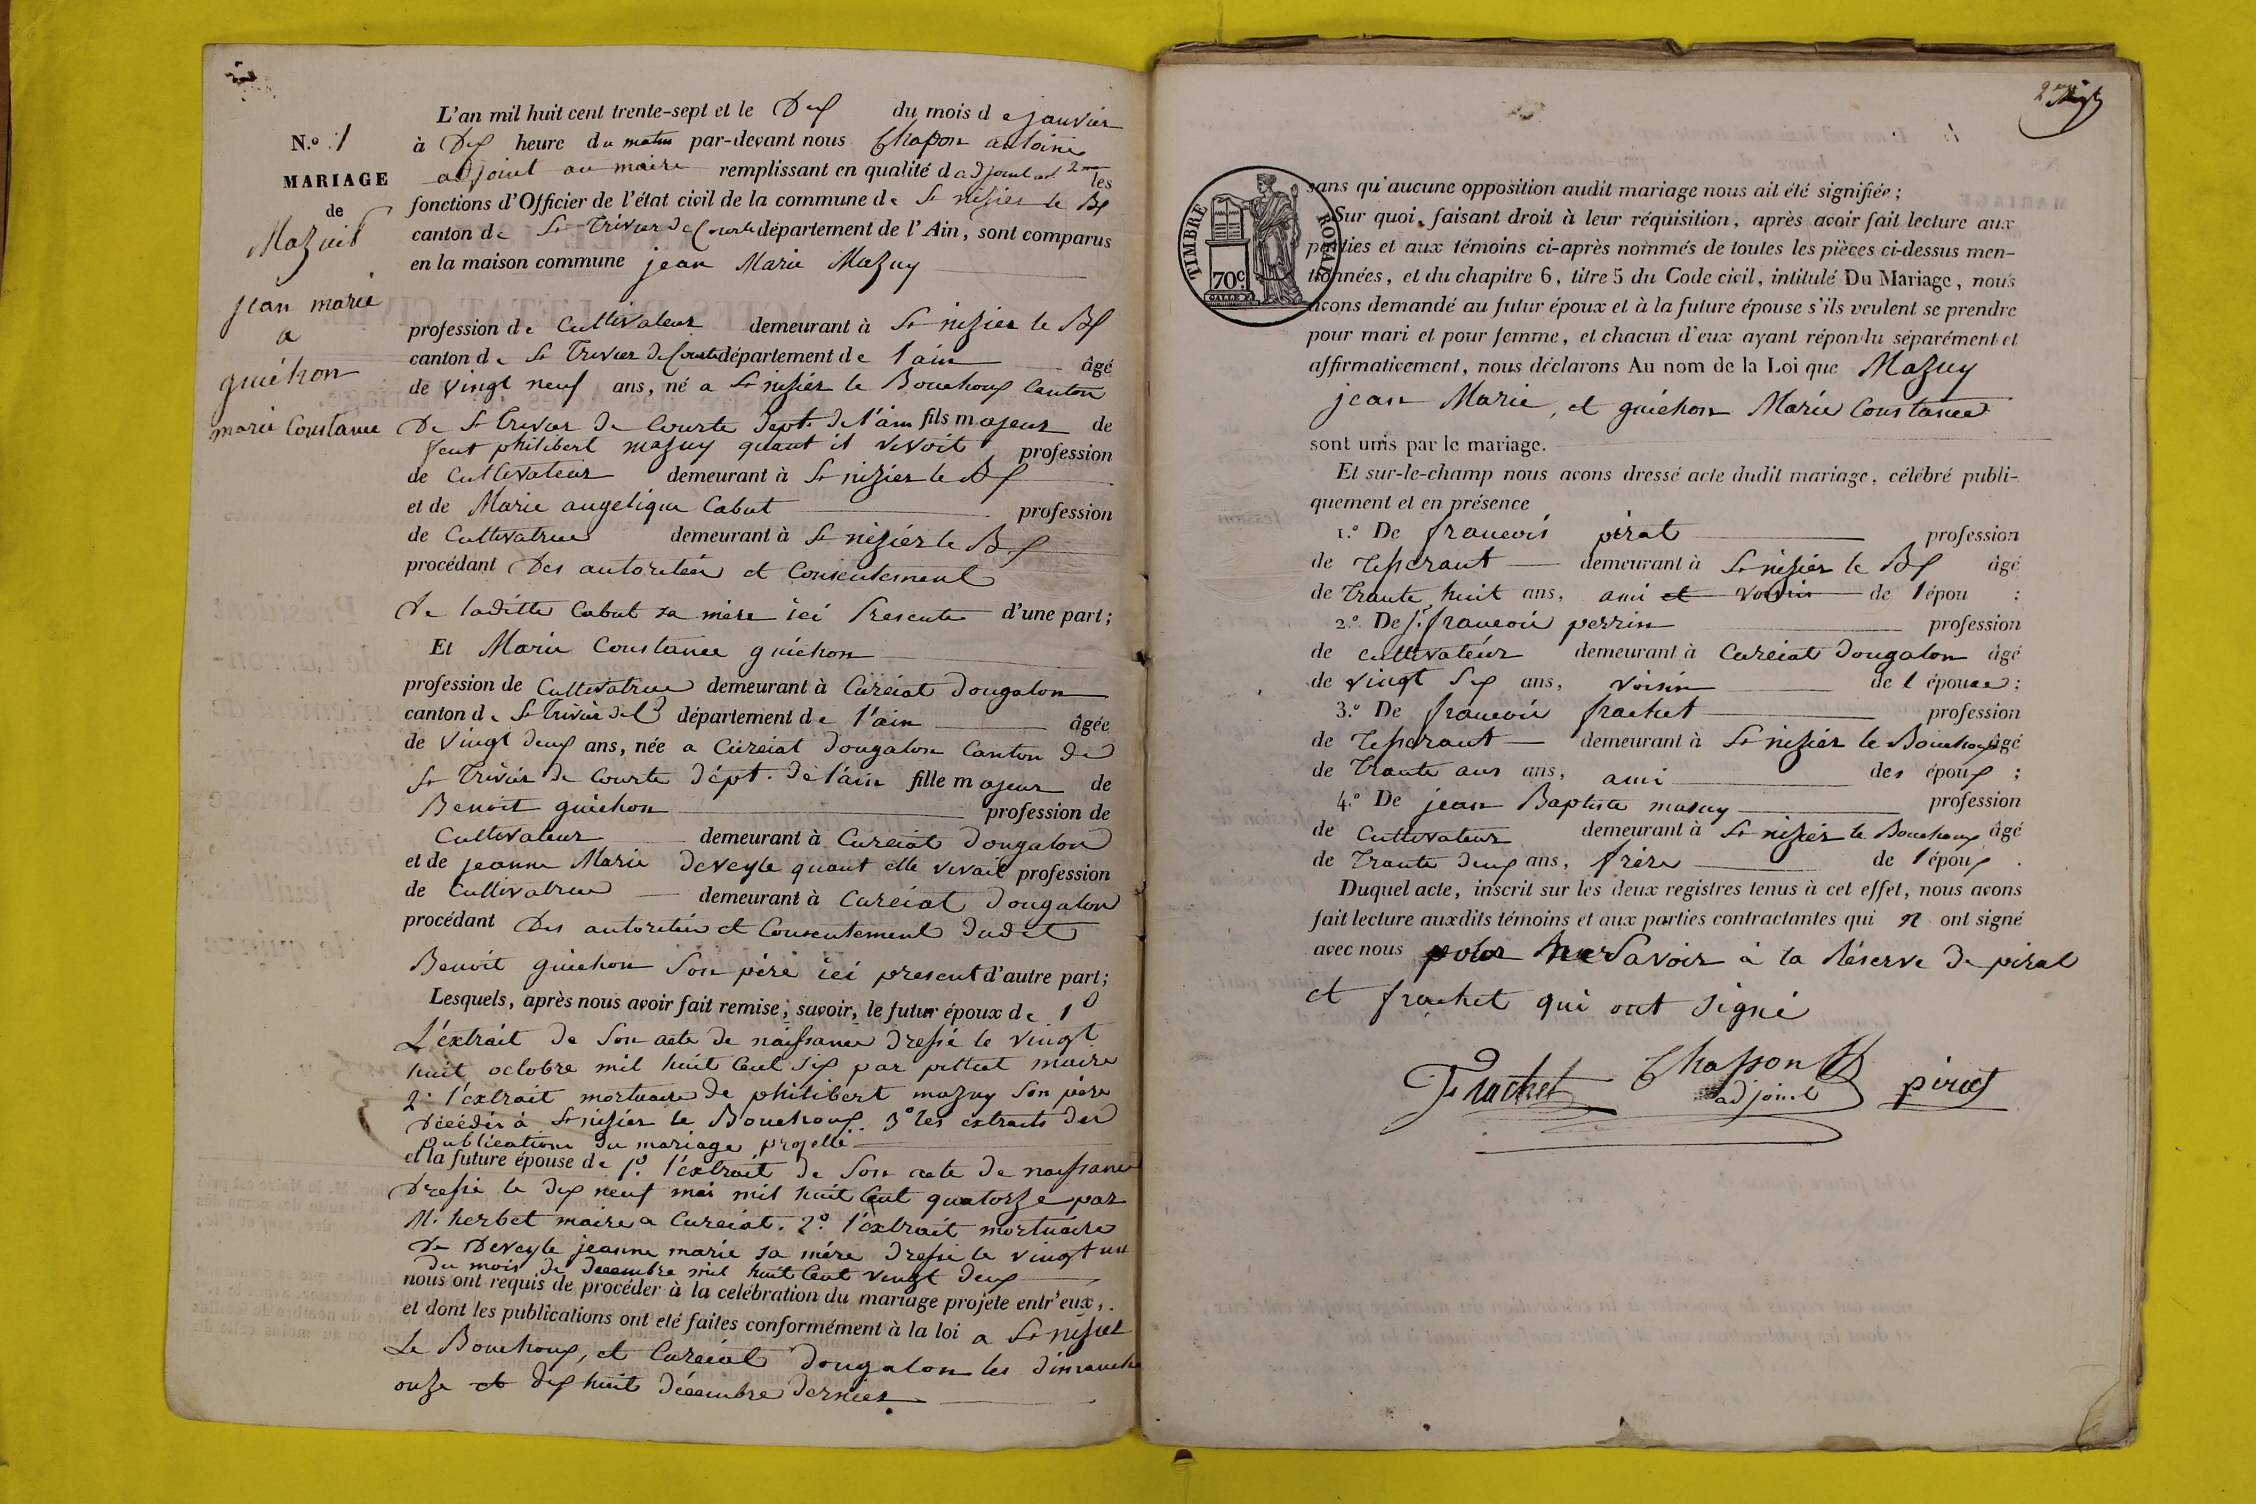 N.º 1
MARIAGE
de
Mazuit
jean marie
a
guichon
marie Constance
L'an mil huit cent trente-sept et le Dix du mois de janvier
à Dix heure du matin par-devant nous Chapon antoine
adjoint au maire remplissant en qualité d adjoint les
fonctions d'Officier de l'état civil de la commune de St nizier le Bx
canton de St Trivier de Courte département de l'Ain, sont comparus
en la maison commune jean Marie Mazuy
profession de Cultivateur demeurant à St nizier le Bx
canton de St Trivier de Courte département de l'ain âgé
de vingt neuf ans, né a St nizier le Bouchoux Canton
De St trivier de Courte dept. de l'ain fils majeur de
feut philibert mazuy quant il vivoit profession
de Cultivateur demeurant à St nizier le Bx
et de Marie angelique Cabut profession
de Cultivatrice demeurant à St nizier le Bx
procédant Des autoritées et Consentement
De laditte Cabut sa mère ici Presente d'une part;
Et Marie Constance guichon
profession de Cultivatrice demeurant à Curciat dongalon
canton de St Trivier de C département de l'ain âgée
de vingt deux ans, née a Curciat dongalon Canton de
St Trivier de Courte dépt. de l'ain fille majeur de
Benoit guichon profession de
Cultivateur demeurant à Curciat dongalon
et de jeanne Marie deveyle quant elle vivait profession
de Cultivatrice demeurant à Curciat dongalon
procédant Des autoritées et Consentement dudit
Benoit guichon Son père ici present d'autre part;
Lesquels, après nous avoir fait remise, savoir, le futur époux de 1º
L'extrait de Son acte de naissance dressé le vingt
huit octobre mil huit Cent Six par maire
2º l'extrait mortuaire de philibert mazuy Son père
décédé à St nizier le Bouchoux. 3º les extraits des
publications du mariage projetté
et la future épouse de 1º. l'extrait de Son acte de naissance
Dressé le dix neuf mai mil huit Cent quatorze par
M. herbet maire a Curciat. 2º. l'extrait mortuaire
De Deveyle jeanne marie sa mère dressé le vingt un
du mois de decembre mil huit Cent vingt deux
nous ont requis de procéder à la celébration du mariage projeté entr'eux,
et dont les publications ont été faites conformément à la loi a St nizier
Le Bouchoux, et Curciat dongalon les dimanche
onze et dix huit décembre dernier
TIMBRE ROYAL
70 c.
sans qu'aucune opposition audit mariage nous ait été signifiée;
Sur quoi, faisant droit à leur réquisition, après avoir fait lecture aux
parties et aux témoins ci-après nommés de toutes les pièces ci-dessus men-
tionnées, et du chapitre 6, titre 5 du Code civil, intitulé Du Mariage, nous
avons demandé au futur époux et à la future épouse s'ils veulent se prendre
pour mari et pour femme, et chacun d'eux ayant répondu séparément et
affirmativement, nous déclarons Au nom de la Loi que Mazuy
jean Marie, et guichon Marie Constance
sont unis par le mariage.
Et sur-le-champ nous avons dressé acte dudit mariage, célébré publi-
quement et en présence
1.º De francois pirat profession
de Tisserant demeurant à St nizier le Bx âgé
de Trante huit ans, ami et voisin de l'épou ;
2.º De francois perrin profession
de cultivateur demeurant à Curciat dongalon âgé
de vingt Six ans, voisin de l épouse;
3.º De francois frachet profession
de Tisserant demeurant à St nizier le Bouchoux âgé
de Trante ans ans, ami des époux ;
4.º De jean Baptiste mazuy profession
de Cultivateur demeurant à St nizier le Bouchoux âgé
de Trante deux ans, frère de l'époux .
Duquel acte, inscrit sur les deux registres tenus à cet effet, nous avons
fait lecture auxdits témoins et aux parties contractantes qui n ont signé
avec nous pour ne Savoir à la réserve De pirat
et frachet qui ont signé
Frachet Chapon adjoint pirat